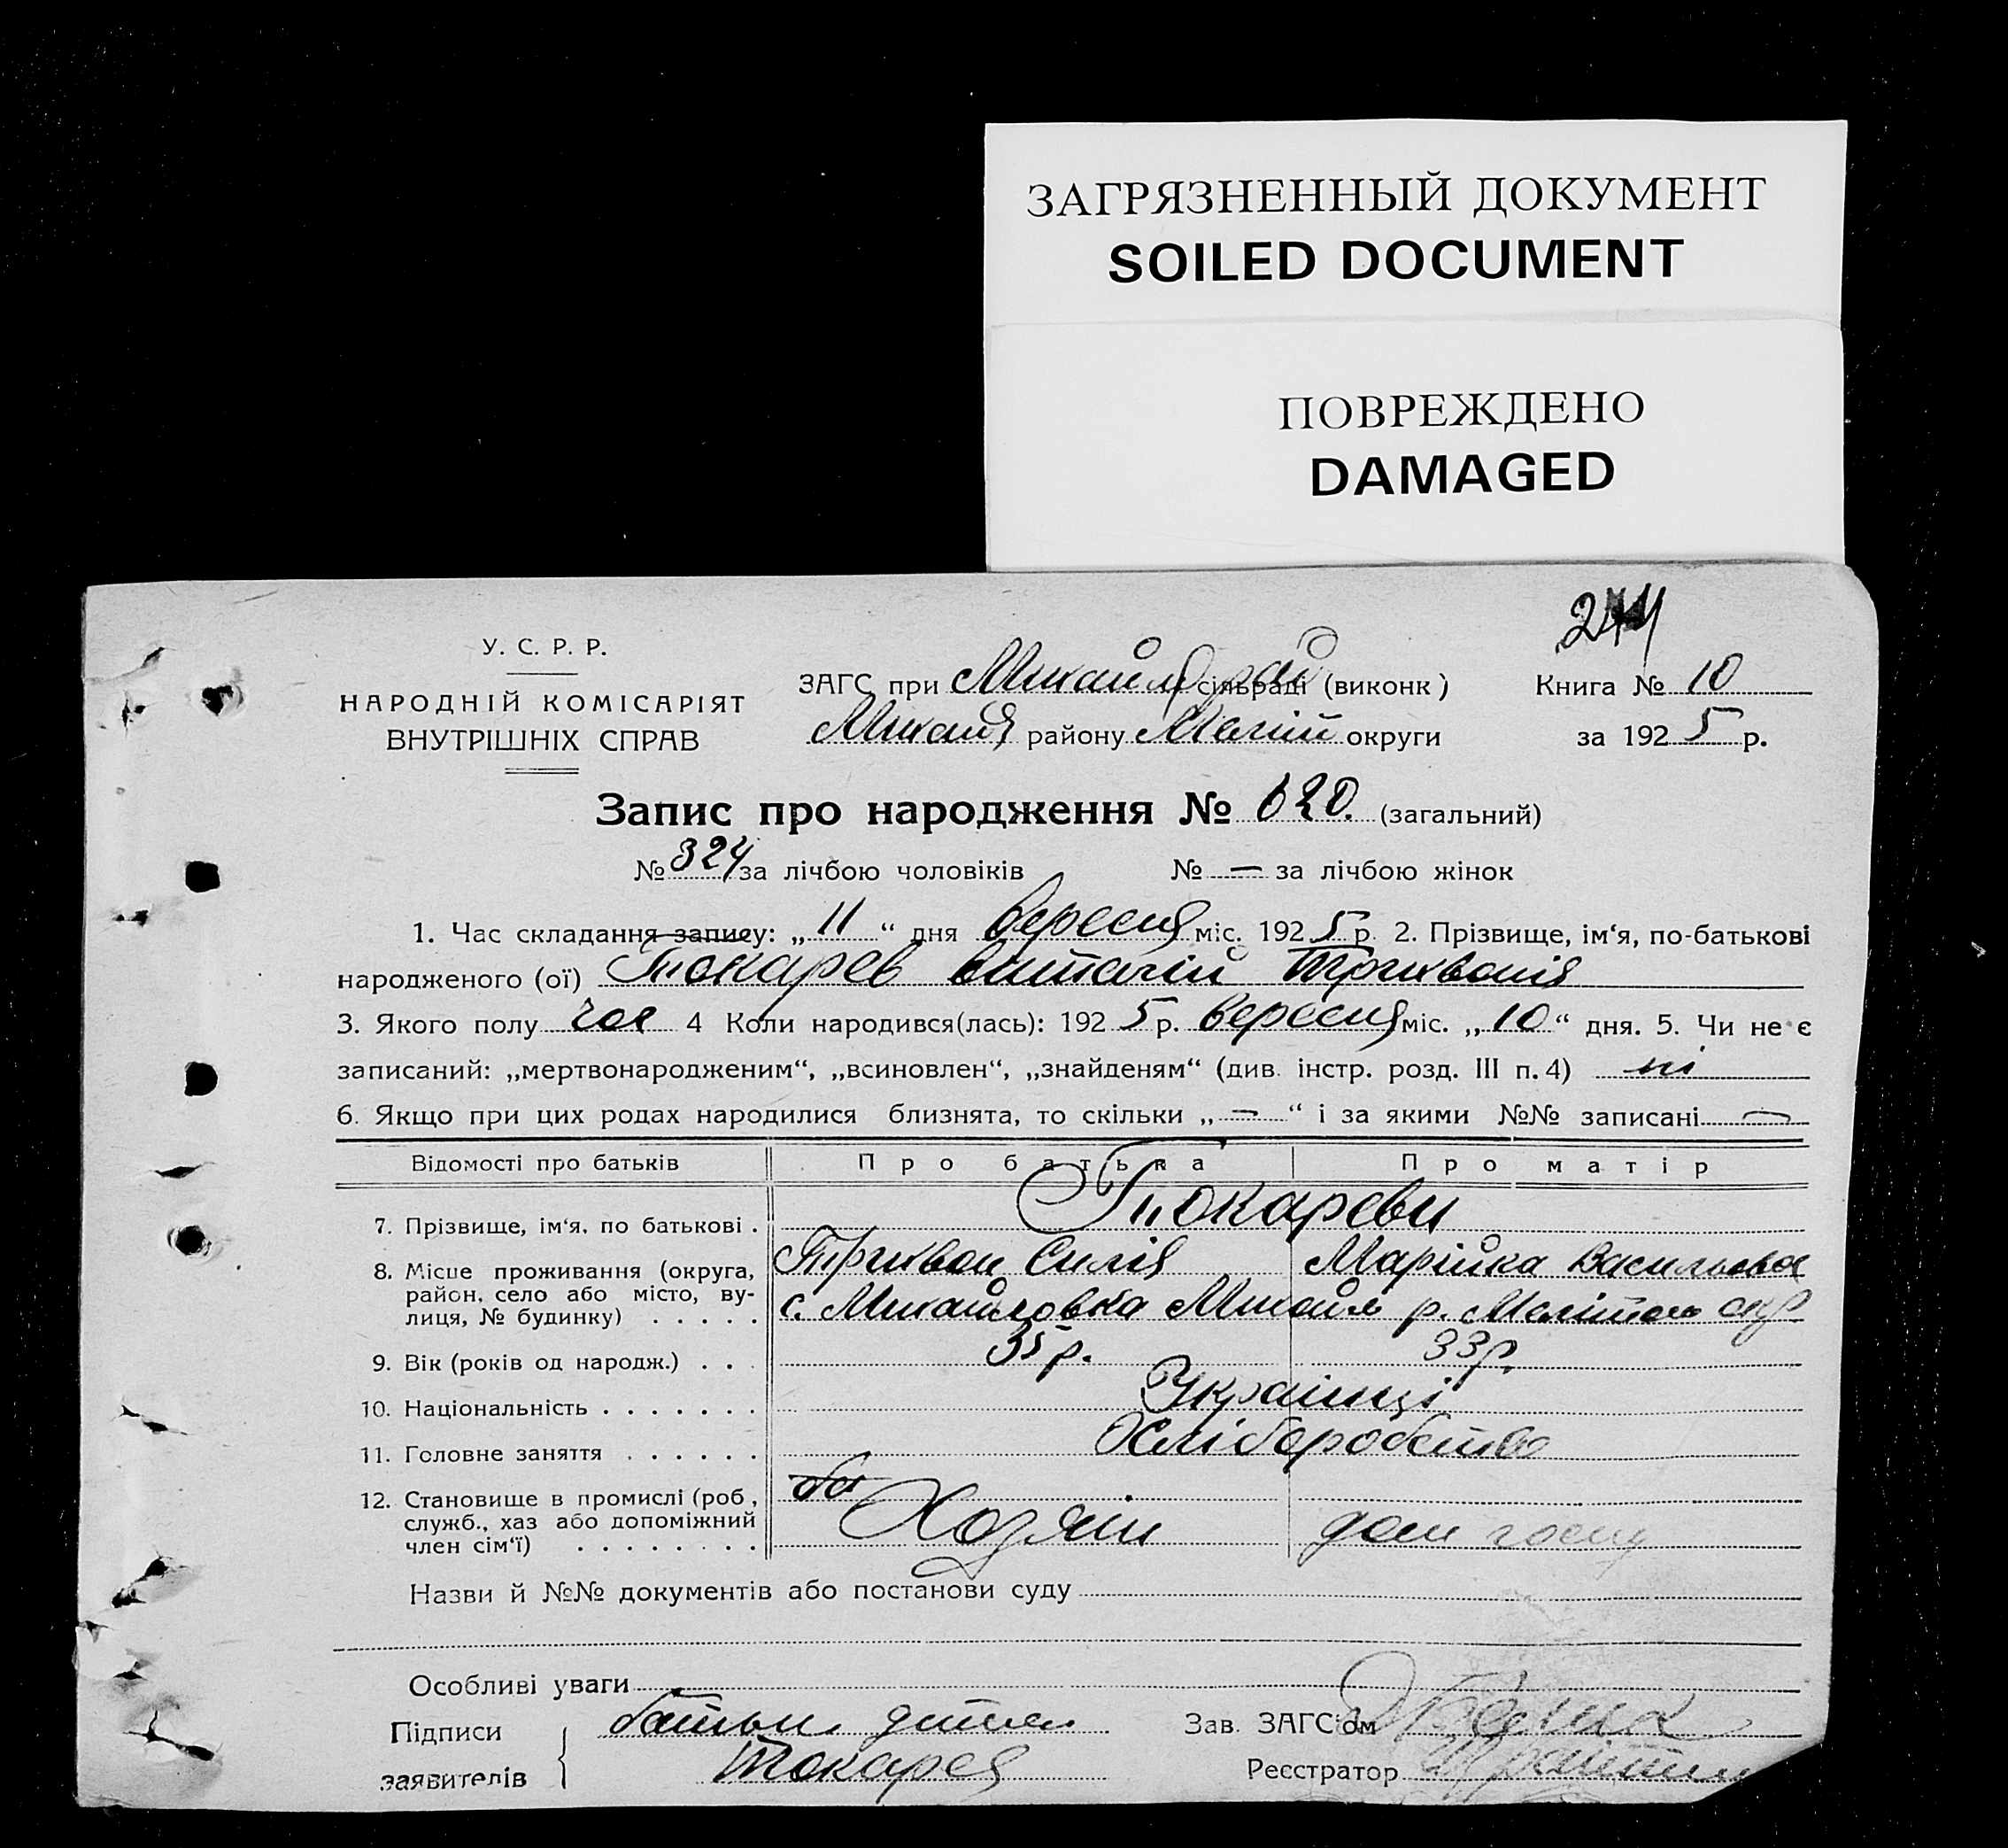 ЗАГРЯЗНЕННЫЙ ДОКУМЕНТ
SOILED DOCUMENT
ПОВРЕЖДЕНО
DAMAGED
У. С. Р. Р.
НАРОДНІЙ КОМІСАРІЯТ
ВНУТРІШНІХ СПРАВ
ЗАГС при сільраді (виконк)
району округи
Книга № 10
за 1925 р.
Запис про народження № 620. (загальний)
№ 324 за лічбою чоловіків № — за лічбою жінок
1. Час складання запису: „ 11 “ дня вересня міс. 1925 р. 2. Прізвище, ім‘я, по-батькові
народженого (ої) Токарев
3. Якого полу чол 4 Коли народився(лась): 1925 р. вересня міс. „ 10 “ дня. 5. Чи не є
записаний: „мертвонародженим“, „всиновлен“, „знайденям“ (див. інстр. розд. III п. 4) ні
6. Якщо при цих родах народилися близнята, то скільки „ — “ і за якими №№ записані —
Відомості про батьків Про батька Про матір
7. Прізвище, ім‘я, по батькові . Токареви
Марійка
8. Місце проживання (округа,
район, село або місто, ву-
лиця, № будинку) . . . . . с. Михайловка
9. Вік (років од народж.) . . . 35 р. 33 р.
10. Національність . . . . . . . Українці
11. Головне заняття . . . . . . Хліборобство
12. Становище в промислі (роб.,
служб., хаз або допоміжний
член сім‘ї) . . . . . . . . Хозяїн дом
Назви й №№ документів або постанови суду
Особливі уваги
Підписи
заявителів
Токарев
Зав. ЗАГС‘ом
Реєстратор